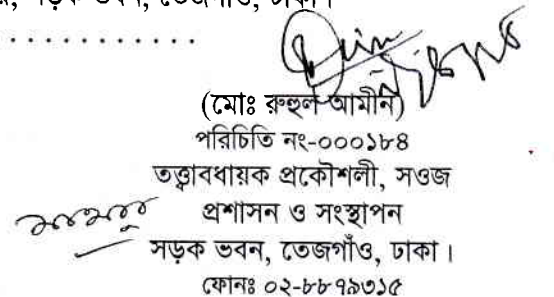 সড়ক ভবন, তেজগাঁও, ঢাকা।
. . . . . . . . . . . . .
(মোঃ রুহুল আমীন)
পরিচিতি নং-০০০১৮৪
তত্ত্বাবধায়ক প্রকৌশলী, সওজ
প্রশাসন ও সংস্থাপন
সড়ক ভবন, তেজগাঁও, ঢাকা।
ফোনঃ ০২-৮৮৭৯৩১৫